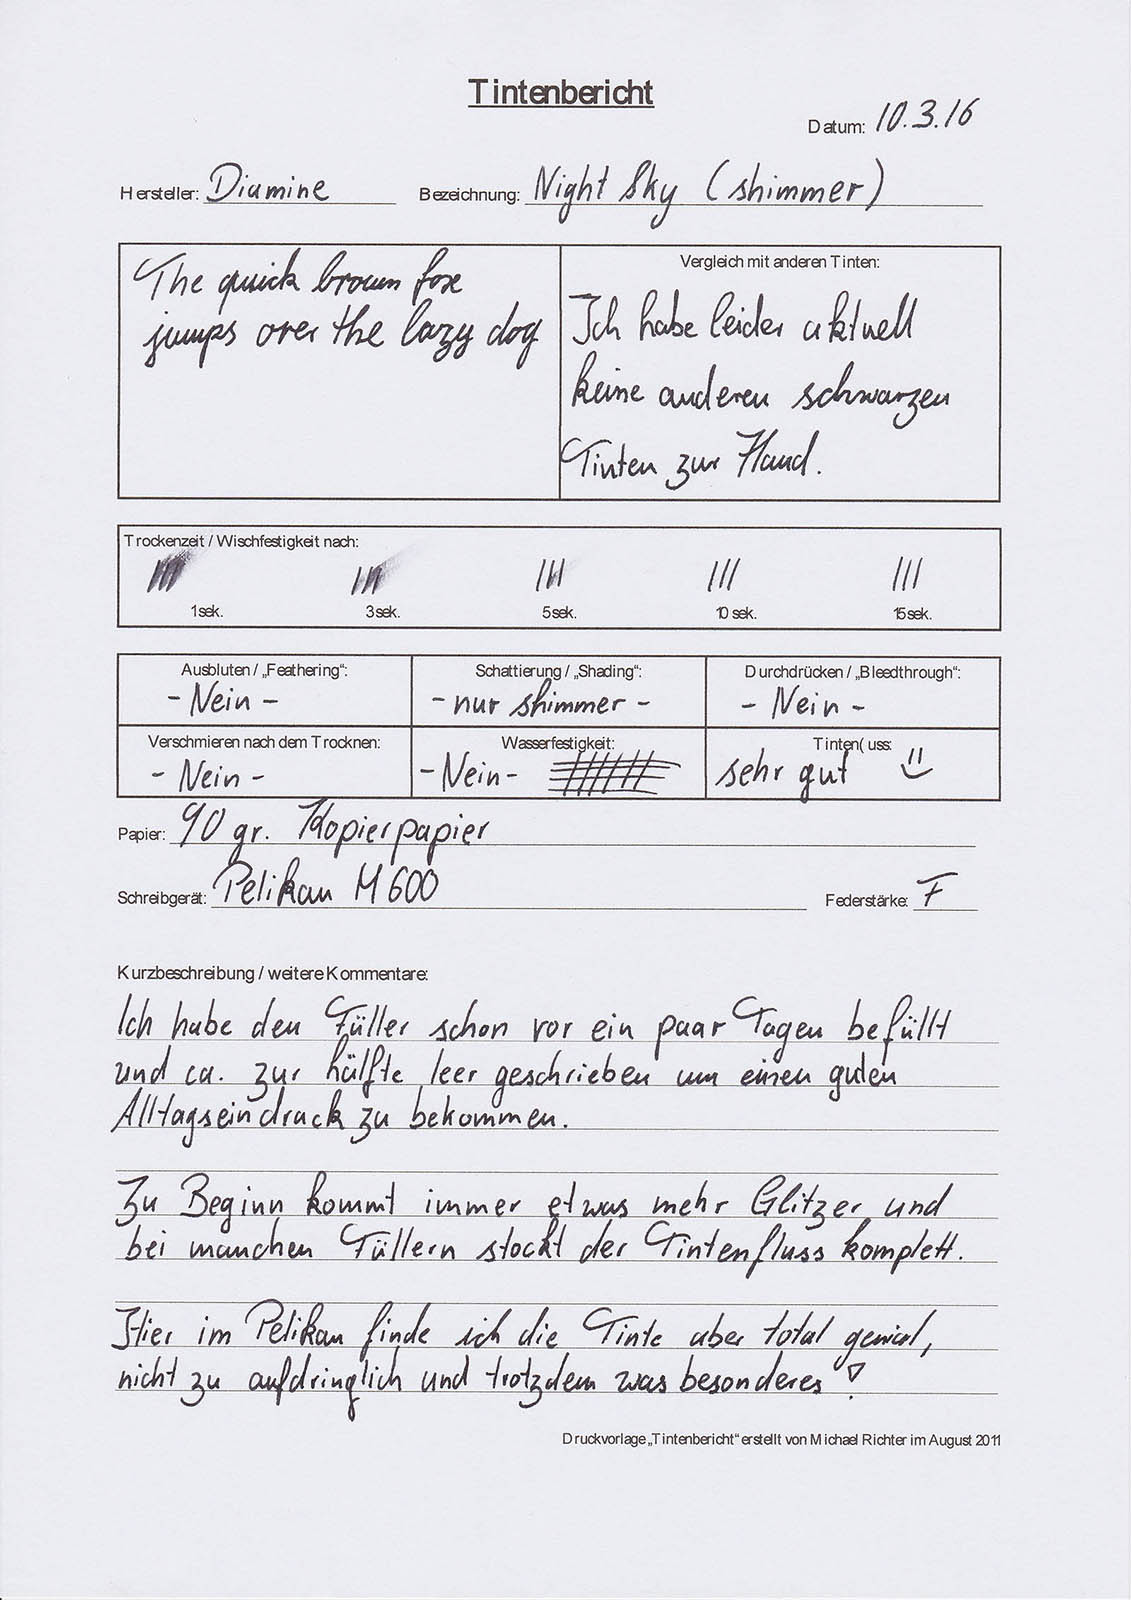 Tintenbericht
Datum: 10.3.16
Hersteller: Diamine Bezeichnung: Night Sky (shimmer)
The quick brown fox
jumps over the lazy dog
Vergleich mit anderen Tinten:
Ich habe leider aktuell
keine anderen schwarzen
Tinten zur Hand.
Trockenzeit / Wischfestigkeit nach:
1sek. 3sek. 5sek. 10 sek. 15sek.
Ausbluten / „Feathering“:
- Nein -
Schattierung / „Shading“:
- nur shimmer -
Durchdrücken / „Bleedthrough“:
- Nein -
Verschmieren nach dem Trocknen:
- Nein -
Wasserfestigkeit:
- Nein -
Tinten( uss:
sehr gut
Papier: 90 gr. Kopierpapier
Schreibgerät: Pelikan M600 Federstärke: F
Kurzbeschreibung / weitere Kommentare:
Ich habe den Füller schon vor ein paar Tagen befüllt
und ca. zur hälfte leer geschrieben um einen guten
Alltagseindruck zu bekommen.
Zu Beginn kommt immer etwas mehr Glitzer und
bei manchen Füllern stockt der Tintenfluss komplett.
Hier im Pelikan finde ich die Tinte aber total genial,
nicht zu aufdringlich und trotzdem was besonderes!
Druckvorlage „Tintenbericht“ erstellt von Michael Richter im August 2011